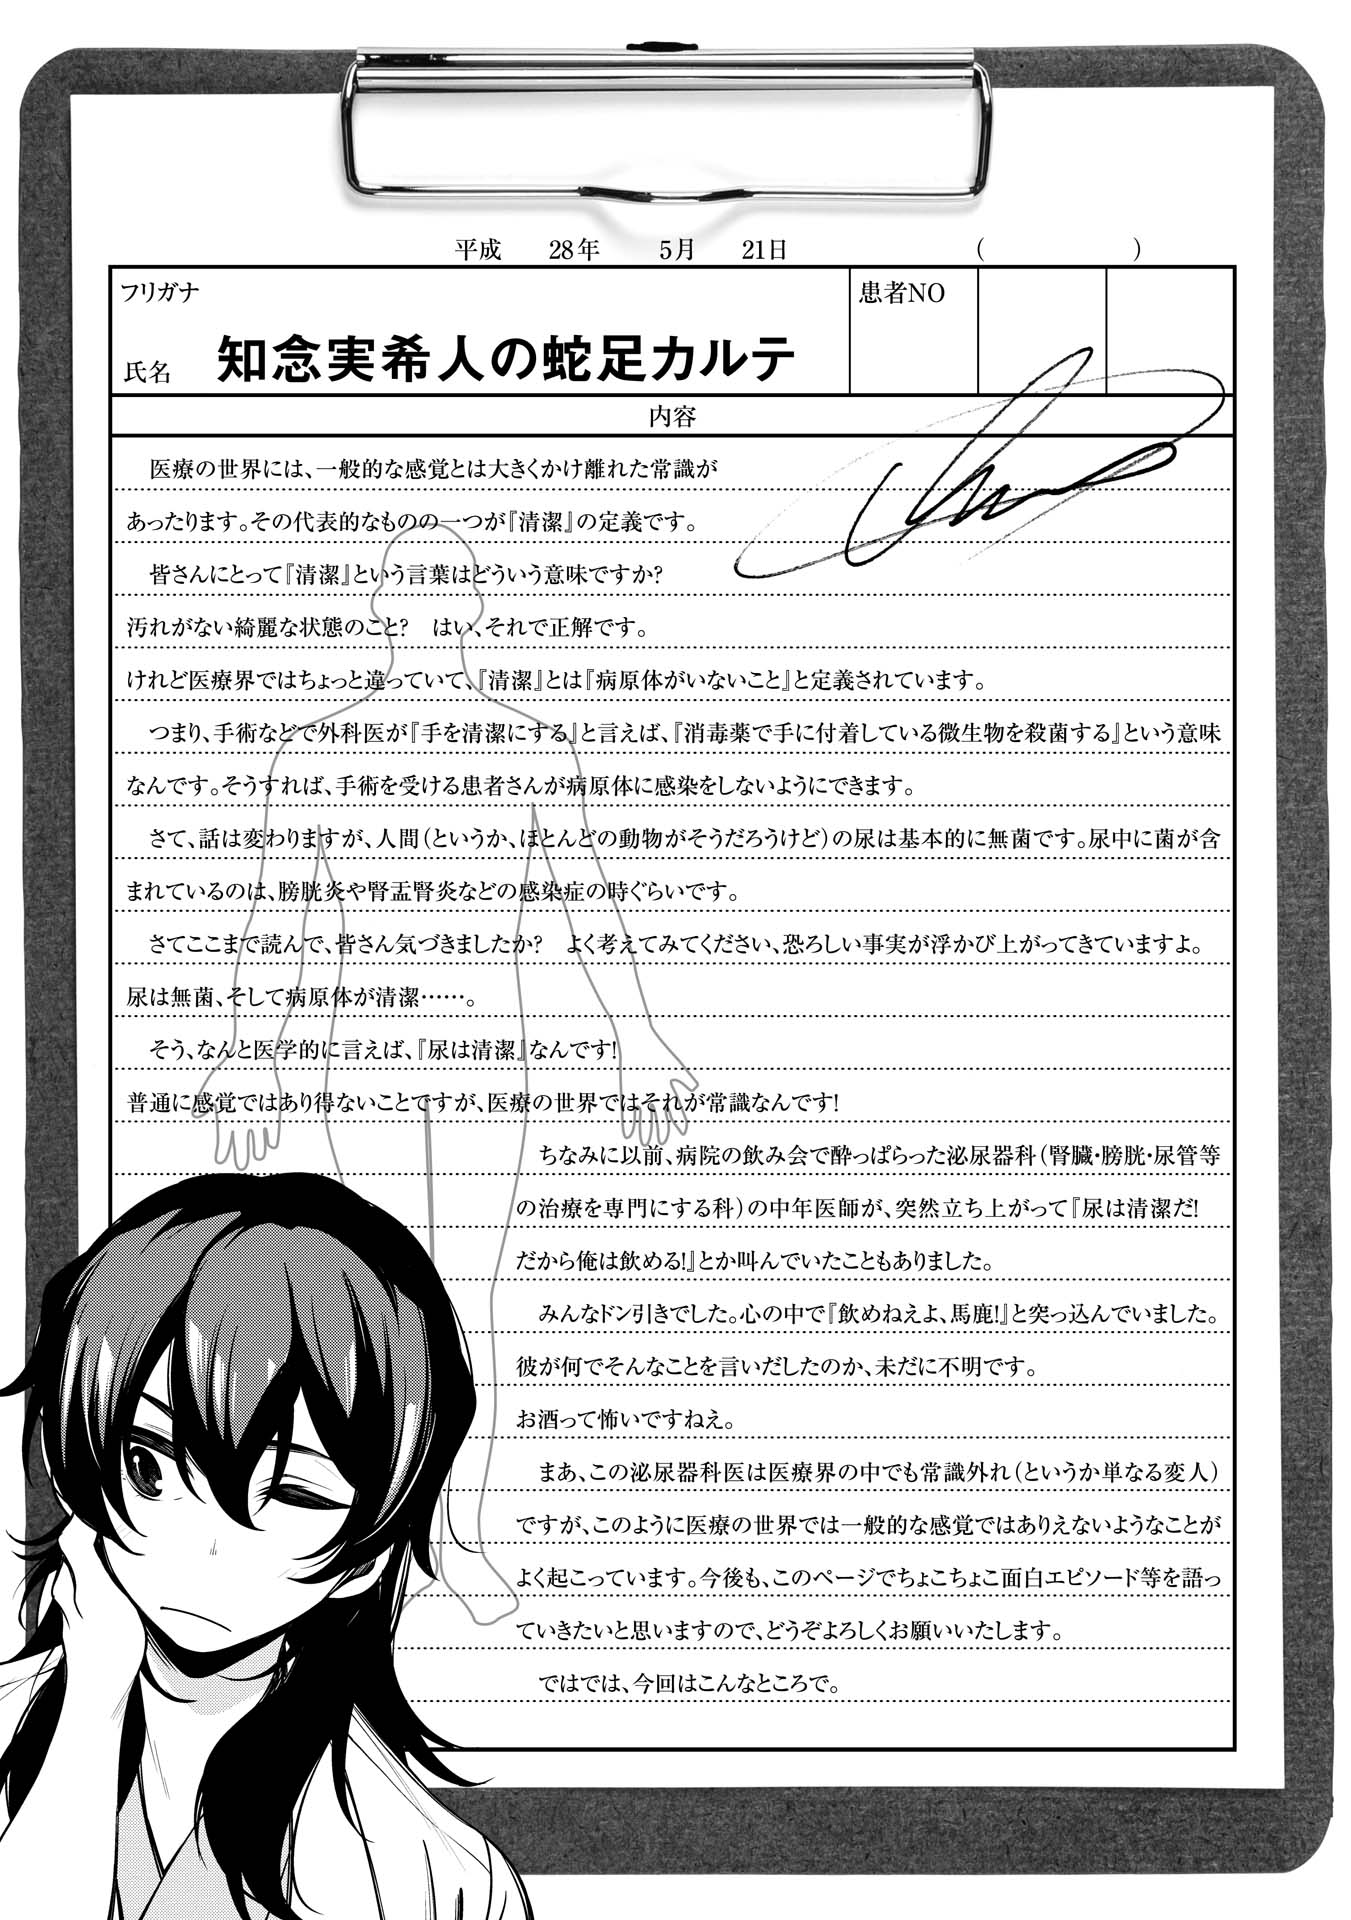 平成　28年　5月　21日　(　　　)
フリガナ
患者NO
氏名　知念実希人の蛇足カルテ
内容
医療の世界には、一般的な感覚とは大きくかけ離れた常識が
あったります。その代表的なものの一つが『清潔』の定義です。
皆さんにとって『清潔』という言葉はどういう意味ですか?
汚れがない綺麗な状態のこと?　はい、それで正解です。
けれど医療界ではちょっと違っていて、『清潔』とは『病原体がいないこと』と定義されています。
つまり、手術などで外科医が『手を清潔にする』と言えば、『消毒薬で手に付着している微生物を殺菌する』という意味
なんです。そうすれば、手術を受ける患者さんが病原体に感染をしないようにできます。
さて、話は変わりますが、人間(というか、ほとんどの動物がそうだろうけど)の尿は基本的に無菌です。尿中に菌が含
まれているのは、膀胱炎や腎盂腎炎などの感染症の時ぐらいです。
さてここまで読んで、皆さん気づきましたか?　よく考えてみてください、恐ろしい事実が浮かび上がってきていますよ。
尿は無菌、そして病原体が清潔……。
そう、なんと医学的に言えば、『尿は清潔』なんです!
普通に感覚ではあり得ないことですが、医療の世界ではそれが常識なんです!
ちなみに以前、病院の飲み会で酔っぱらった泌尿器科(腎臓・膀胱・尿管等
の治療を専門にする科)の中年医師が、突然立ち上がって『尿は清潔だ!
だから俺は飲める!』とか叫んでいたこともありました。
みんなドン引きでした。心の中で『飲めねえよ、馬鹿!』と突っ込んでいました。
彼が何でそんなことを言いだしたのか、未だに不明です。
お酒って怖いですねえ。
まあ、この泌尿器科医は医療界の中でも常識外れ(というか単なる変人)
ですが、このように医療の世界では一般的な感覚ではありえないようなことが
よく起こっています。今後も、このページでちょこちょこ面白エピソード等を語っ
ていきたいと思いますので、どうぞよろしくお願いいたします。
ではでは、今回はこんなところで。